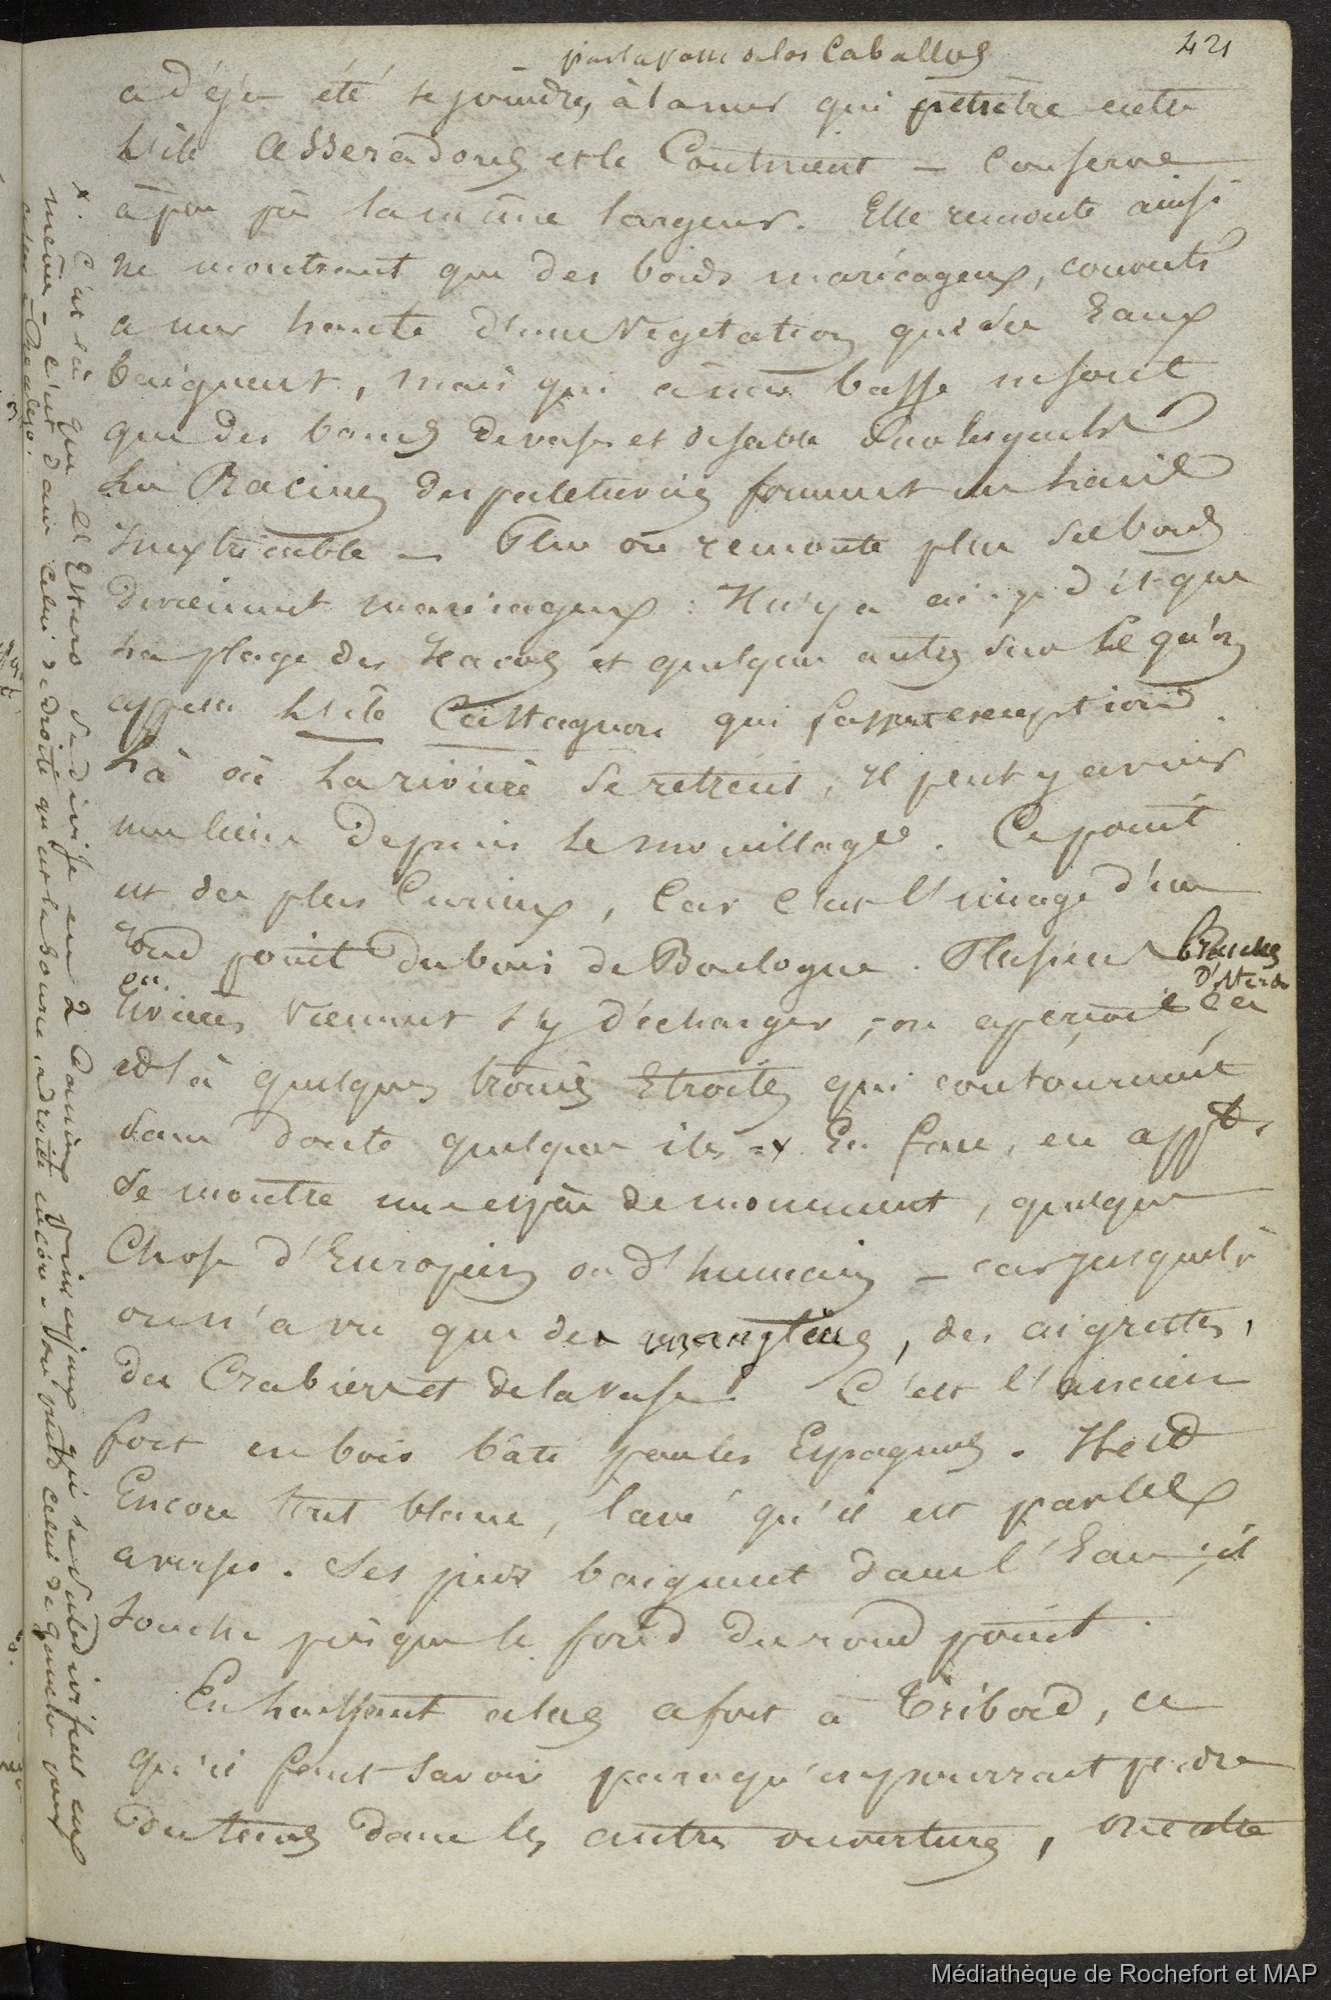 421
par la passe de los Caballos
a déjà été se joindre, à la mer qui pénètre entre
L'ile Asseradores et le Continent – conserve
à peu près la même largeur. Elle remonte ainsi
ne montrant que des bords marécageux, couverts
a mer haute d'une Végétation que les Eaux
baignent, mais qui à mer basse ne sont
que des bancs de vase et de sable sur lesquels
Les Racines des palétuviers forment un
Inextricable – Plus on remonte plus les bords
deviennent marécageux : Il n'y a ainsi dit que
La plage des Icacos et quelques autres sur ce qu'on
appelle L'ile Castagnon qui fasse exception.
Là où La rivière se retrécit, Il peut y avoir
une lieue depuis le mouillage. Ce point
est des plus Curieux, Car c'est l'image d'un
rond point du bois de Boulogne. Plusieurs branches
D'Esteros
ou
rivières viennent s'y décharger ; on aperçoit cà
et là quelques trouées Etroites qui contournent
sans doute quelques iles x. En face, en appt.
se montre une espèce de monument, quelque
Chose d'Européen ou d'humain – car jusque là
on n'a vu que des mangliers, des aigrettes,
des Crabiers et de la vase. C'est l'ancien
fort en bois bâti par les Espagnols. Il est
Encore tout blanc, lavé qu'il est par les
averses. Ses pieds baignent dans l'Eau ; il
touche presque le fond du rond point.
En laissant alors a fort à Tribord, ce
qu'il faut savoir parcequ'on pourrait perdre
du tems dans les autres ouvertures, on entre
x. C'est là que el Estero se divise en 2 Canaux principaux qui se subdivisent eux
même – c'est dans celui de droite qu'est la bonne, a droite encore. Vous prendrez celui de gauche pour
aller a Realejo.
Médiathèque de Rochefort et MAP